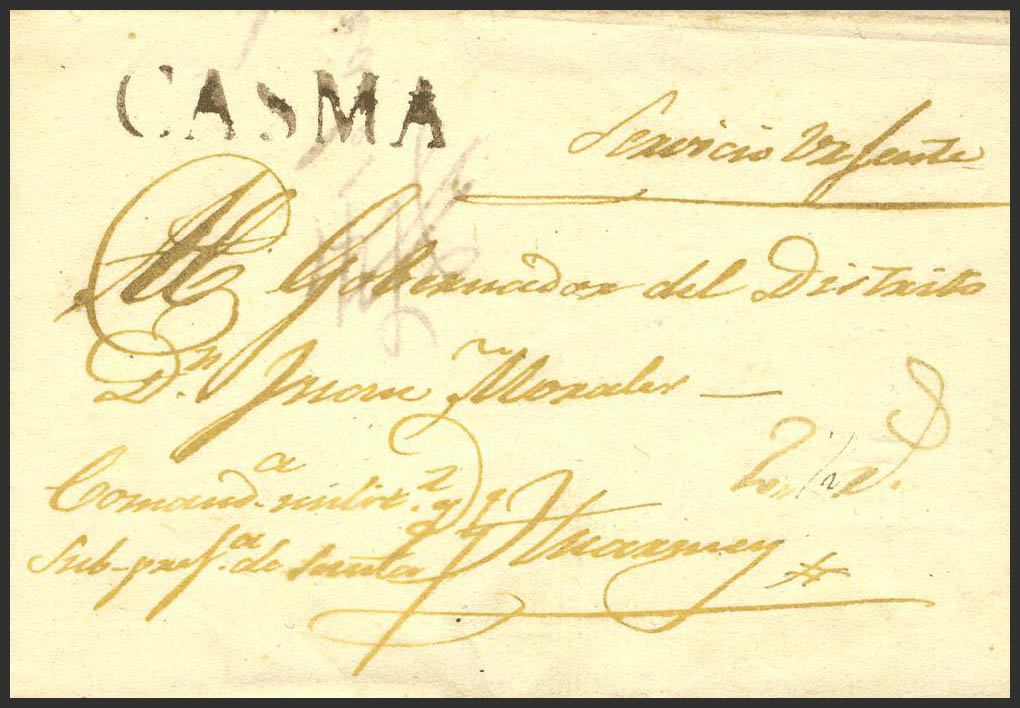 CASMA
Servicio Urgente
Al Gobernador del Distrito
Dn. Juan Morales
Comand.a milit.r y
Sub-pref.a de Santa
Huarmey